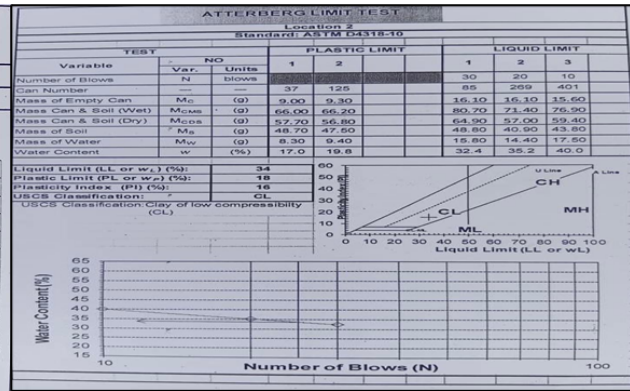 ATTERBERG LIMIT TEST
Location 2
Standard: ASTM D4318-10
TEST NO PLASTIC LIMIT LIQUID LIMIT
Variable Var. Units 1 2 1 2 3
Number of Blows N blows 30 20 10
Can Number — — 37 125 85 269 401
Mass of Empty Can MC (g) 9.00 9.30 16.10 16.10 15.60
Mass Can & Soil (Wet) MCMS (g) 66.00 66.20 80.70 71.40 76.90
Mass Can & Soil (Dry) MCDS (g) 57.70 56.80 64.90 57.00 59.40
Mass of Soil MS (g) 48.70 47.50 48.80 40.90 43.80
Mass of Water MW (g) 8.30 9.40 15.80 14.40 17.50
Water Content w (%) 17.0 19.8 32.4 35.2 40.0
Liquid Limit (LL or wL) (%): 34
Plastic Limit (PL or wP) (%): 18
Plasticity Index (PI) (%): 16
USCS Classification: CL
USCS Classification:Clay of low compressibilty
(CL)
Plasticity Index (PI)
60
50
40
30
20
10
0
U Line
A Line
CH
CL
MH
ML
0 10 20 30 40 50 60 70 80 90 100
Liquid Limit (LL or wL)
Water Content(%)
65
60
55
50
45
40
35
30
25
20
15
10 100
Number of Blows (N)